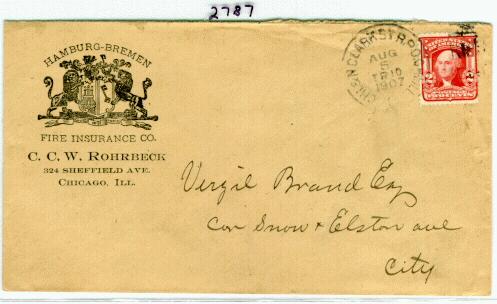 2787
HAMBURG-BREMEN
FIRE INSURANCE CO.
C. C. W. ROHRBECK
324 SHEFFIELD AVE.
CHICAGO, ILL.
AUG
5
1907
2 2
Vergil Brand Esq
Cor Snow & Elston ave
City